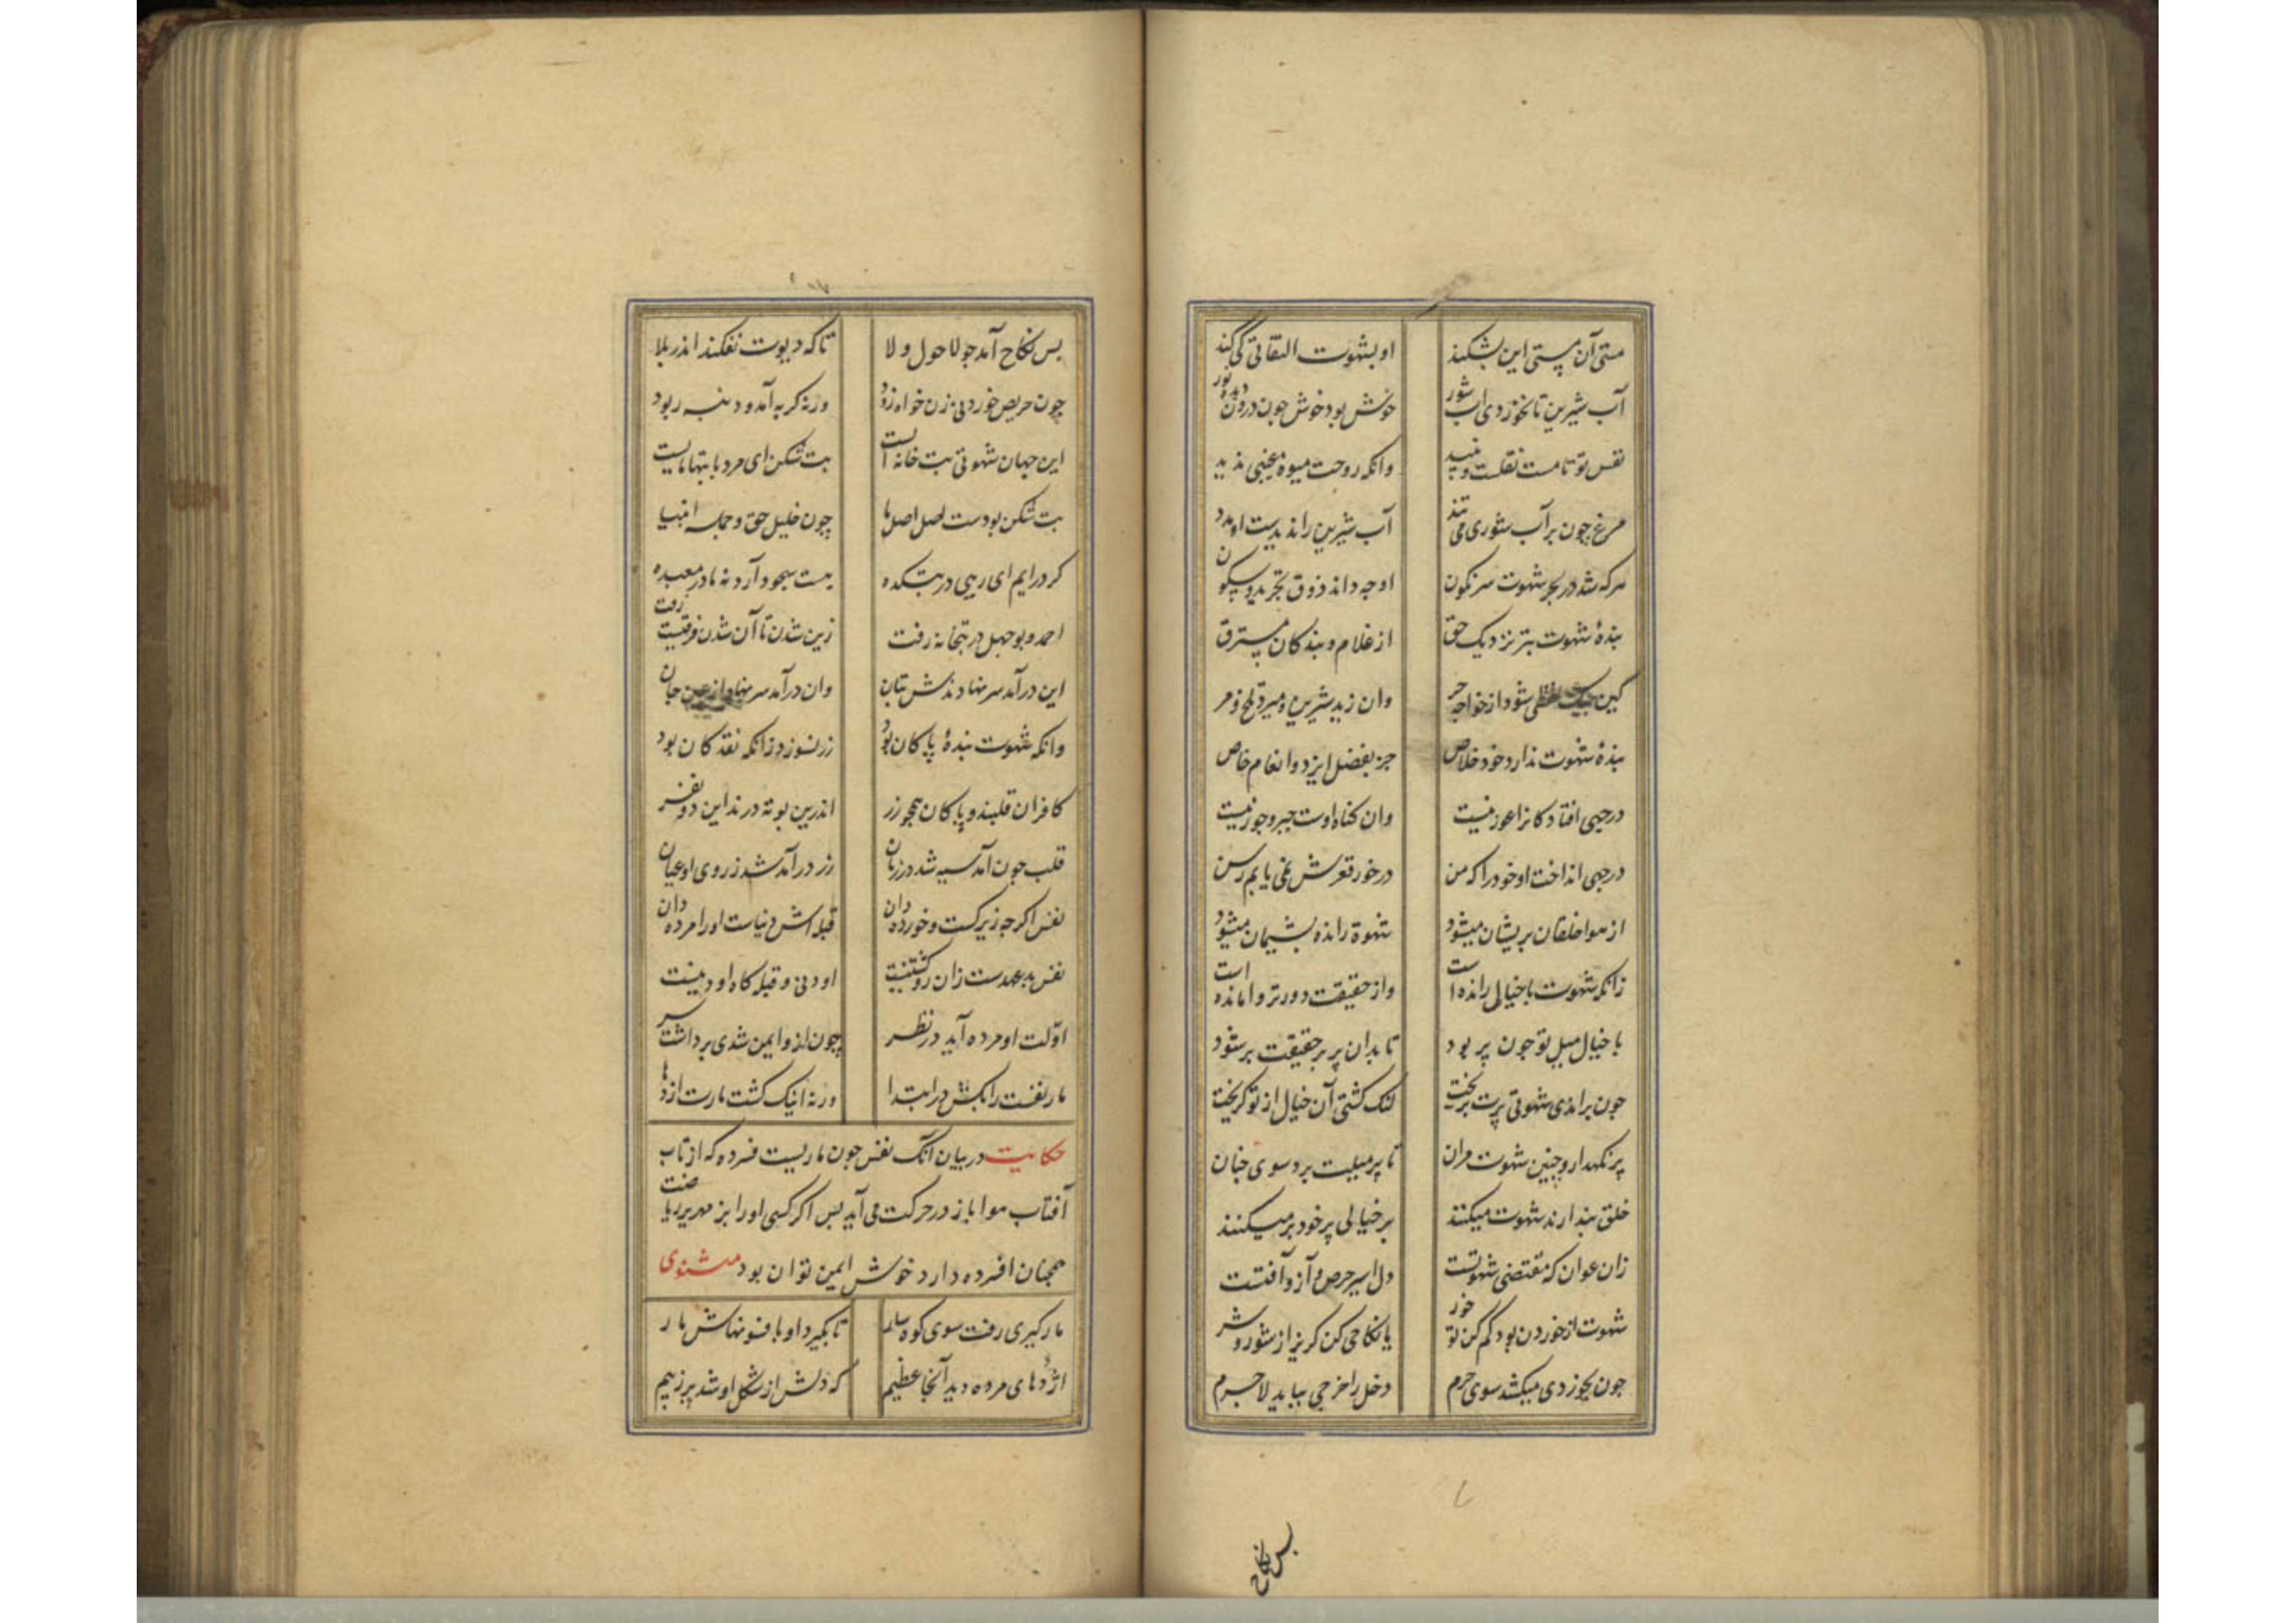 مستی آن مستی این بشکند او بشهوت التفاتی کی کند
آب شیرین تا نخوردی آب شور خوش بود خوش چون درون دیده نور
نفس تو تا مست نقلست و نبید وانکه روحت میوه غیبی ندید
مرغ چون بر آب شوری می تند آب شیرین را ندیدست او مدد
هرکه شد در بحر شهوت سرنکون او چه داند ذوق تجرید و سکون
بندهٔ شهوت بتر نزدیک حق از غلام و بندکان مسترق
کین بیک لفظی شود از خواجه حر وان زید شیرین و میرد تلخ و مر
بندهٔ شهوت ندارد خود خلاص جز بفضل ایزد و انعام خاص
درچهی افتاد کانرا غور نیست وان کناه اوست جبر و جور نیست
درچهی انداخت او خود را که من درخور قعرش نمی یابم رسن
از هوا خلقان پریشان میشود شهوة رانده پشیمان میشود
زانکه شهوت با خیالی رانده است واز حقیقت دورتر وامانده است
با خیال میل تو چون پر بود تا بدان پر بر حقیقت بر شود
چون براندی شهوتی پرت بریخت لنک کشتی آن خیال از تو کریخت
پر نکهدار و چنین شهوت مران تا پر میلیت برد سوی جنان
خلق پندارند شهوت میکنند بر خیالی پر خود بر میکنند
زان عوان که مقتضی شهوتست دل اسیر حرص و آز و آفتست
شهوت از خوردن بود کم کن تو خور یا نکاحی کن کریز از شور و شر
چون بخوردی میکشد سوی حرم دخل را خرجی بباید لاجرم
پس نکاح
پس نکاح آمد چو لاحول ولا تا که دیوت نفکند اندر بلا
چون حریص خوردنی زن خواه زود ورنه کربه آمد و دنبه ربود
این جهان شهوتی بت خانه است بت شکن ای مرد با بتها مایست
بت شکن بودست اصل اصل ما چون خلیل حق و جمله انبیا
کر درایم ای رهی در بتکده بت سجود آرد نه ما در معبده
احمد و بوجهل در بتخانه رفت زین شدن تا آن شدن فرقیست زفت
این درآمد سر نهادندش بتان وان درآمد سر نهاد از جان
وانکه شهوت بندهٔ پاکان بود زر نسوزد زانکه نقد کان بود
کافران قلبند و پاکان همچو زر اندرین بوته درند این دو نفر
قلب چون آمد سیه شد در زمان زر درآمد شد زر روی او عیان
نفس اکرچه زیرکست و خورده دان قبله اش دنیاست او را مرده دان
نفس بدعهدست زان رو کشتنیست او دنی و قبله کاه او دنیست
اولت او مرده آید در نظر چون ازو ایمن شدی برداشت سر
مار نفست را بکش در ابتدا ورنه اینک کشت مارت اژدها
حکایت در بیان آنک نفس چون ماریست فسرده که از تاب
آفتاب هوا باز در حرکت می آید پس اکر کسی او را بزمهریر ریاضت
همچنان افسرده دارد خوش ایمن توان بود مثنوی
مارکیری رفت سوی کوه سار تا بکیرد او بافسونهاش مار
اژدهای مرده دید آنجا عظیم که دلش از شکل او شد پر ز بیم